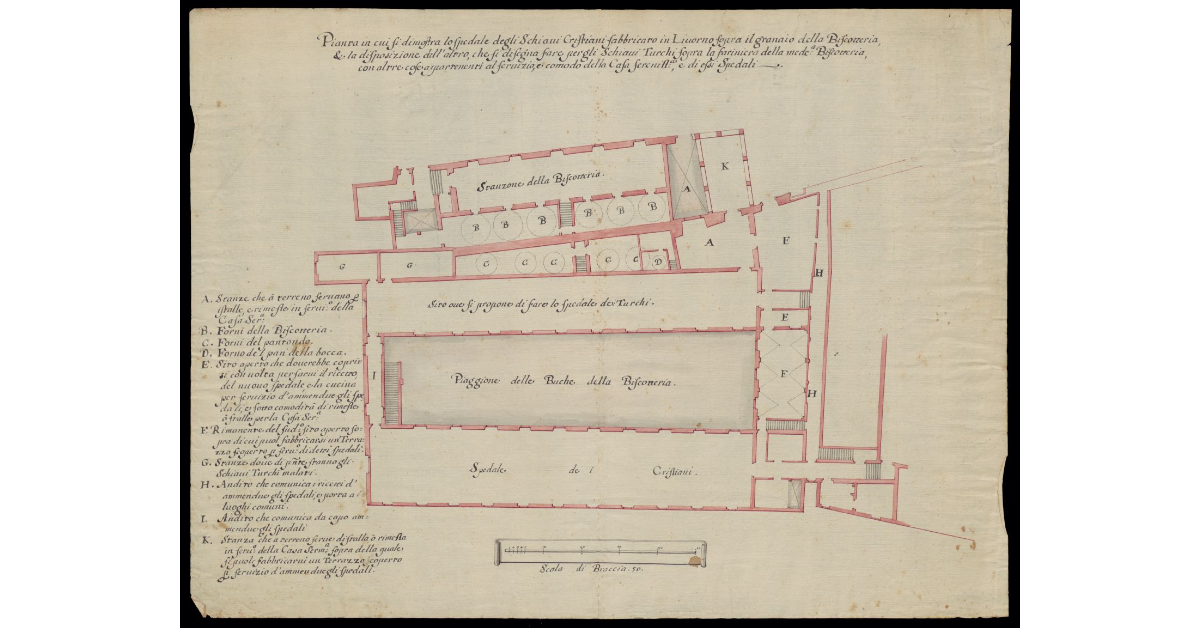 Pianta in cui si dimostra lo spedale degli Schiaui Cristiani fabbricato in Liuorno sopra il granaio della Biscotteria,
& la disposizione dell'altro, che si disegna fare per gli Schiaui Turchi sopra la fariniera della med.ª Biscotteria,
con altre cose appartenenti al seruizio, e comodo della Casa Sereniss.ª, e di essi Spedali
K
Stanzone della Biscotteria.
A
B B B B B B
A
E
G G C C C C C D
H
Sito oue si propone di fare lo Spedale de Turchi.
E
I
Piaggione delle Buche della Biscotteria.
F
H
Spedale de i Cristiani.
A. Stanze che à terreno seruano p
istalle, e rimesse in seru.º della
Casa Ser.ª
B. Forni della Biscotteria.
C. Forni del pantondo.
D. Forno del pan della bocca.
E. Sito aperto che douerebbe coprir
si con uolta per farui il ricetto
del nuouo spedale e la cucina
per seruizio d'ammendue gli spe
dali, e sotto comodità di rimesse
ò stalle per la Casa Ser.ª
F. Rimanente del sud.º sito aperto so
pra di cui puol fabbricarsi un Terra
zzo scoperto p seru.º di detti spedali.
G. Stanze doue di p̃nte stanno gli
Schiaui Turchi malati.
H. Andito che comunica i ricetti d'
ammendue gli spedali, e porta a i
luoghi comuni.
I. Andito che comunica da capo am-
mendue gli spedali
K. Stanza che a terreno serue di stalla ò rimessa
in seru.º della Casa Seren.ª sopra della quale
si puol fabbricarui un Terrazzo scoperto
p seruizio d'ammendue gli spedali.
Scala di Braccia 50.